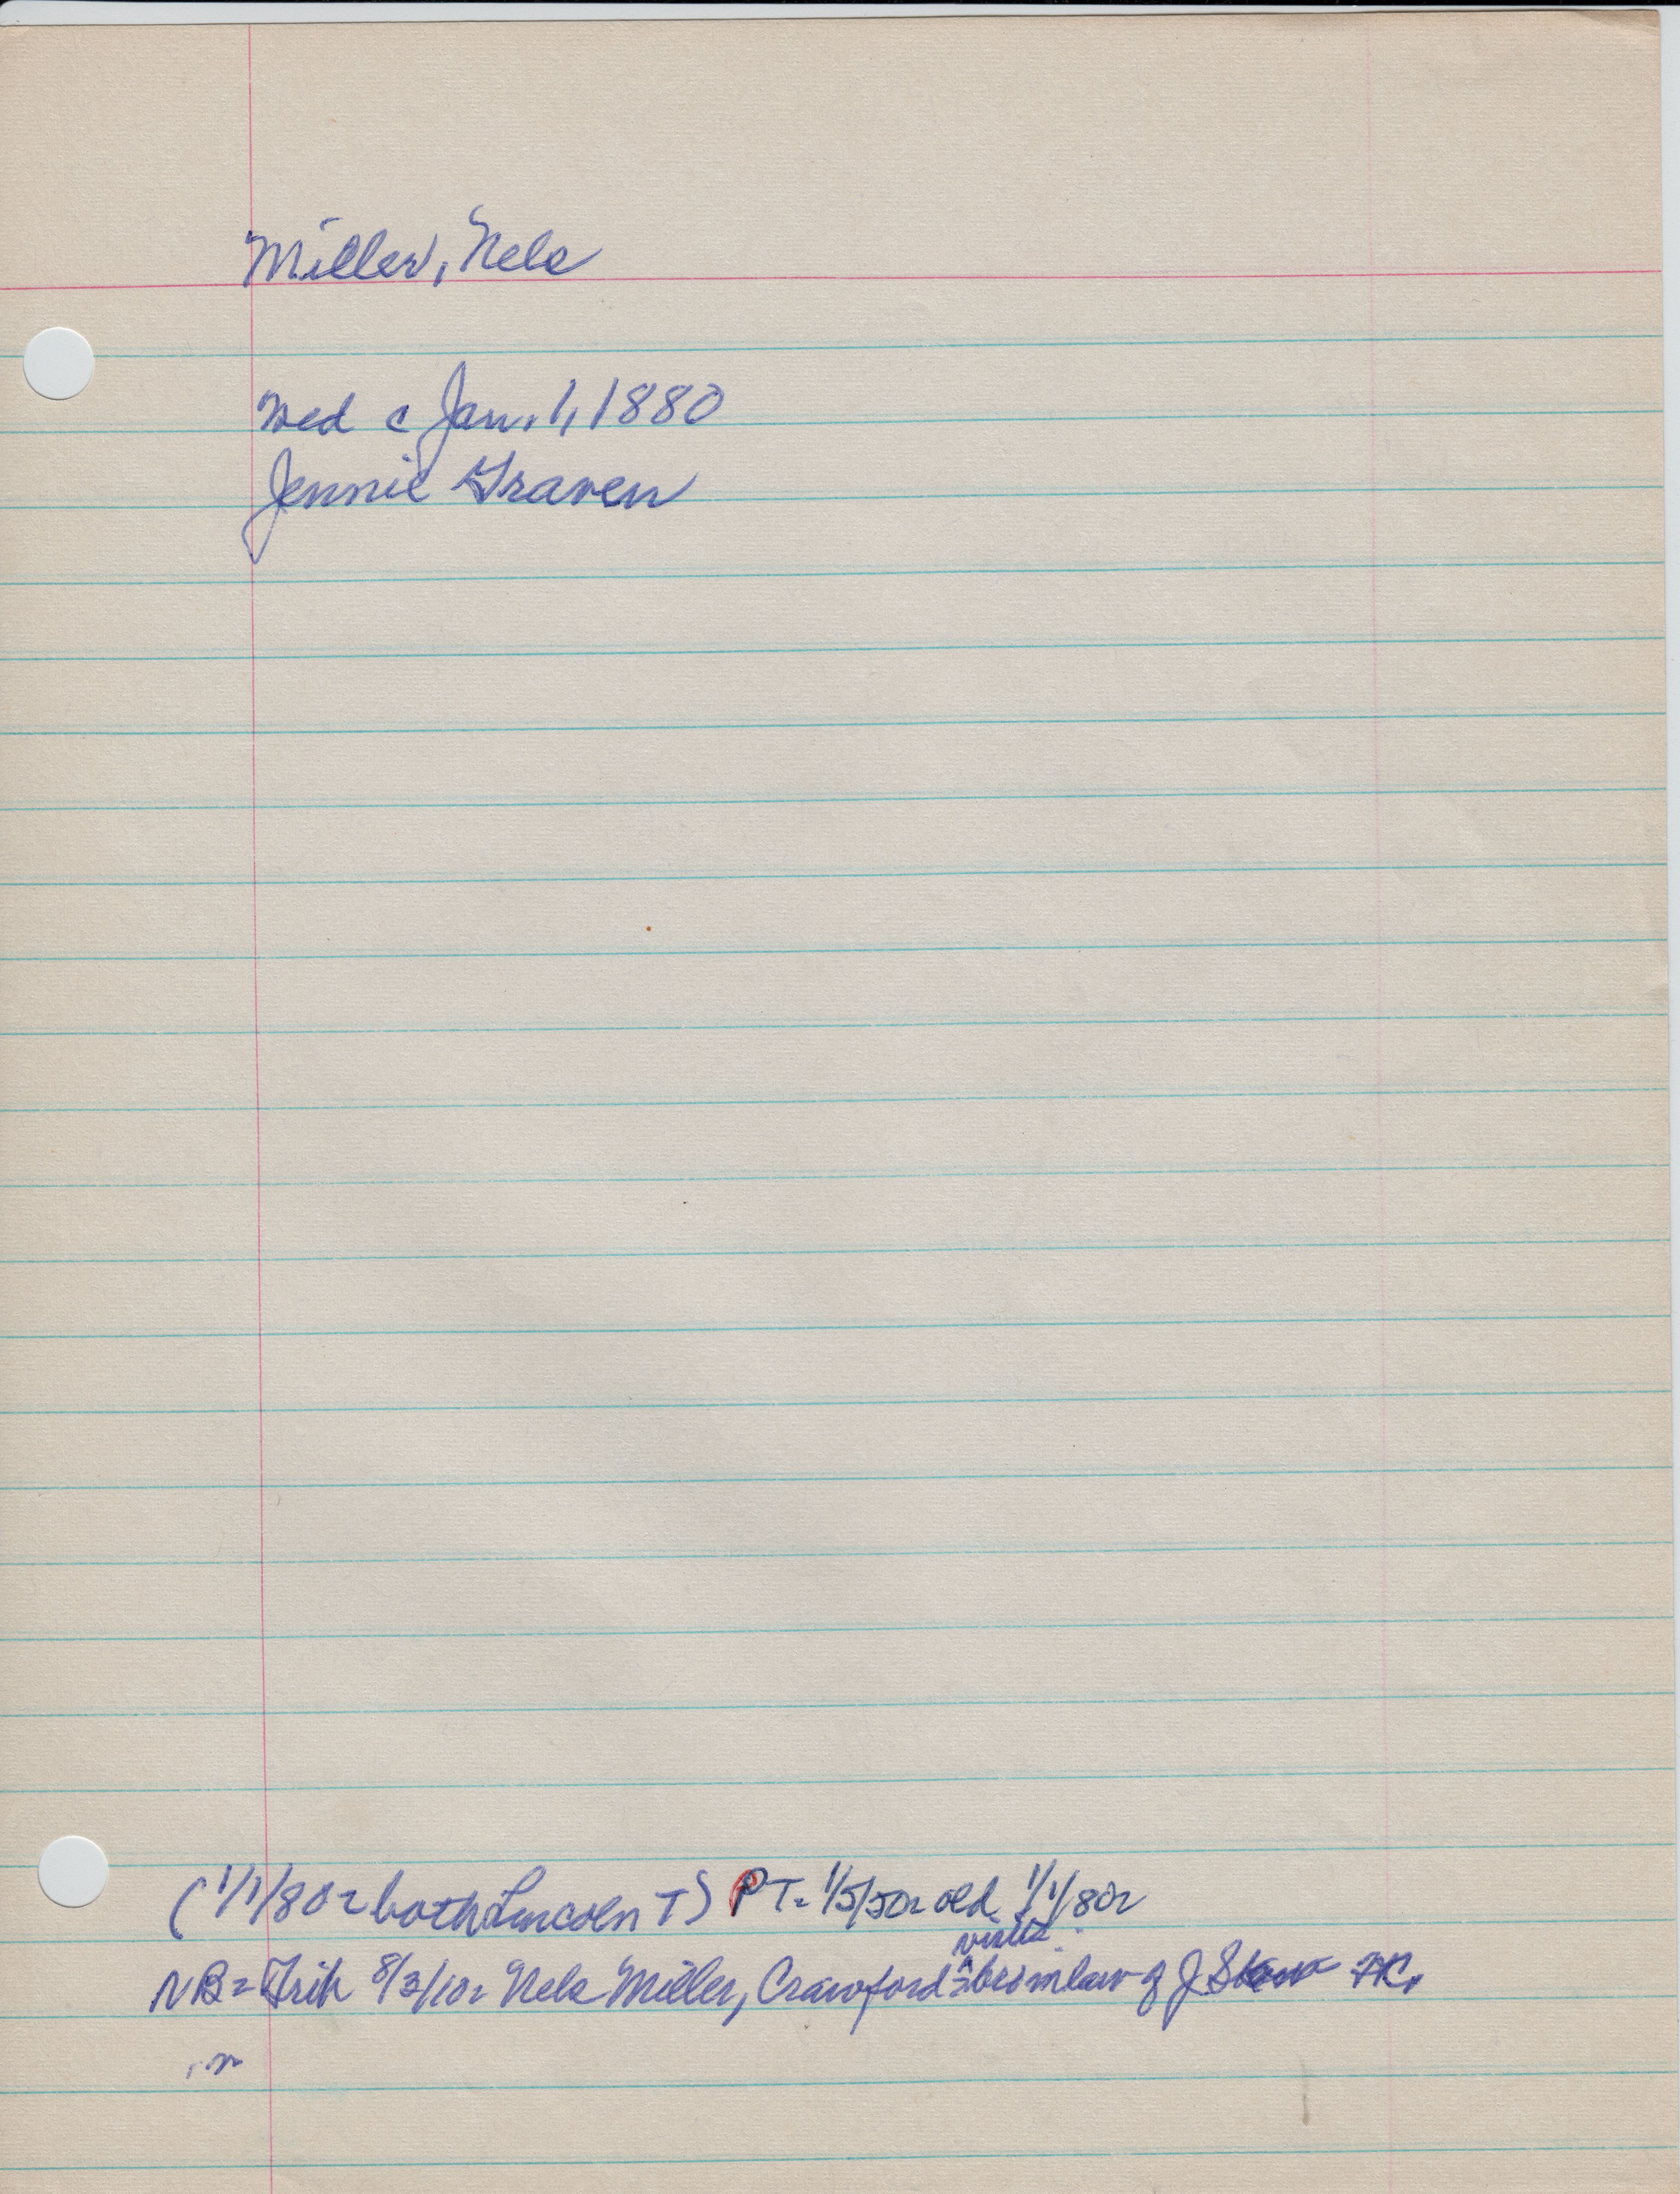 Miller, Nels
wed c Jan. 1, 1880
Jennie Graven
(1/1/80 = both Lincoln T) PT = 1/5/50 = old 1/1/80 =
visits
NB = Trib 8/3/10 = Nels Miller, Crawford = broinlaw of J